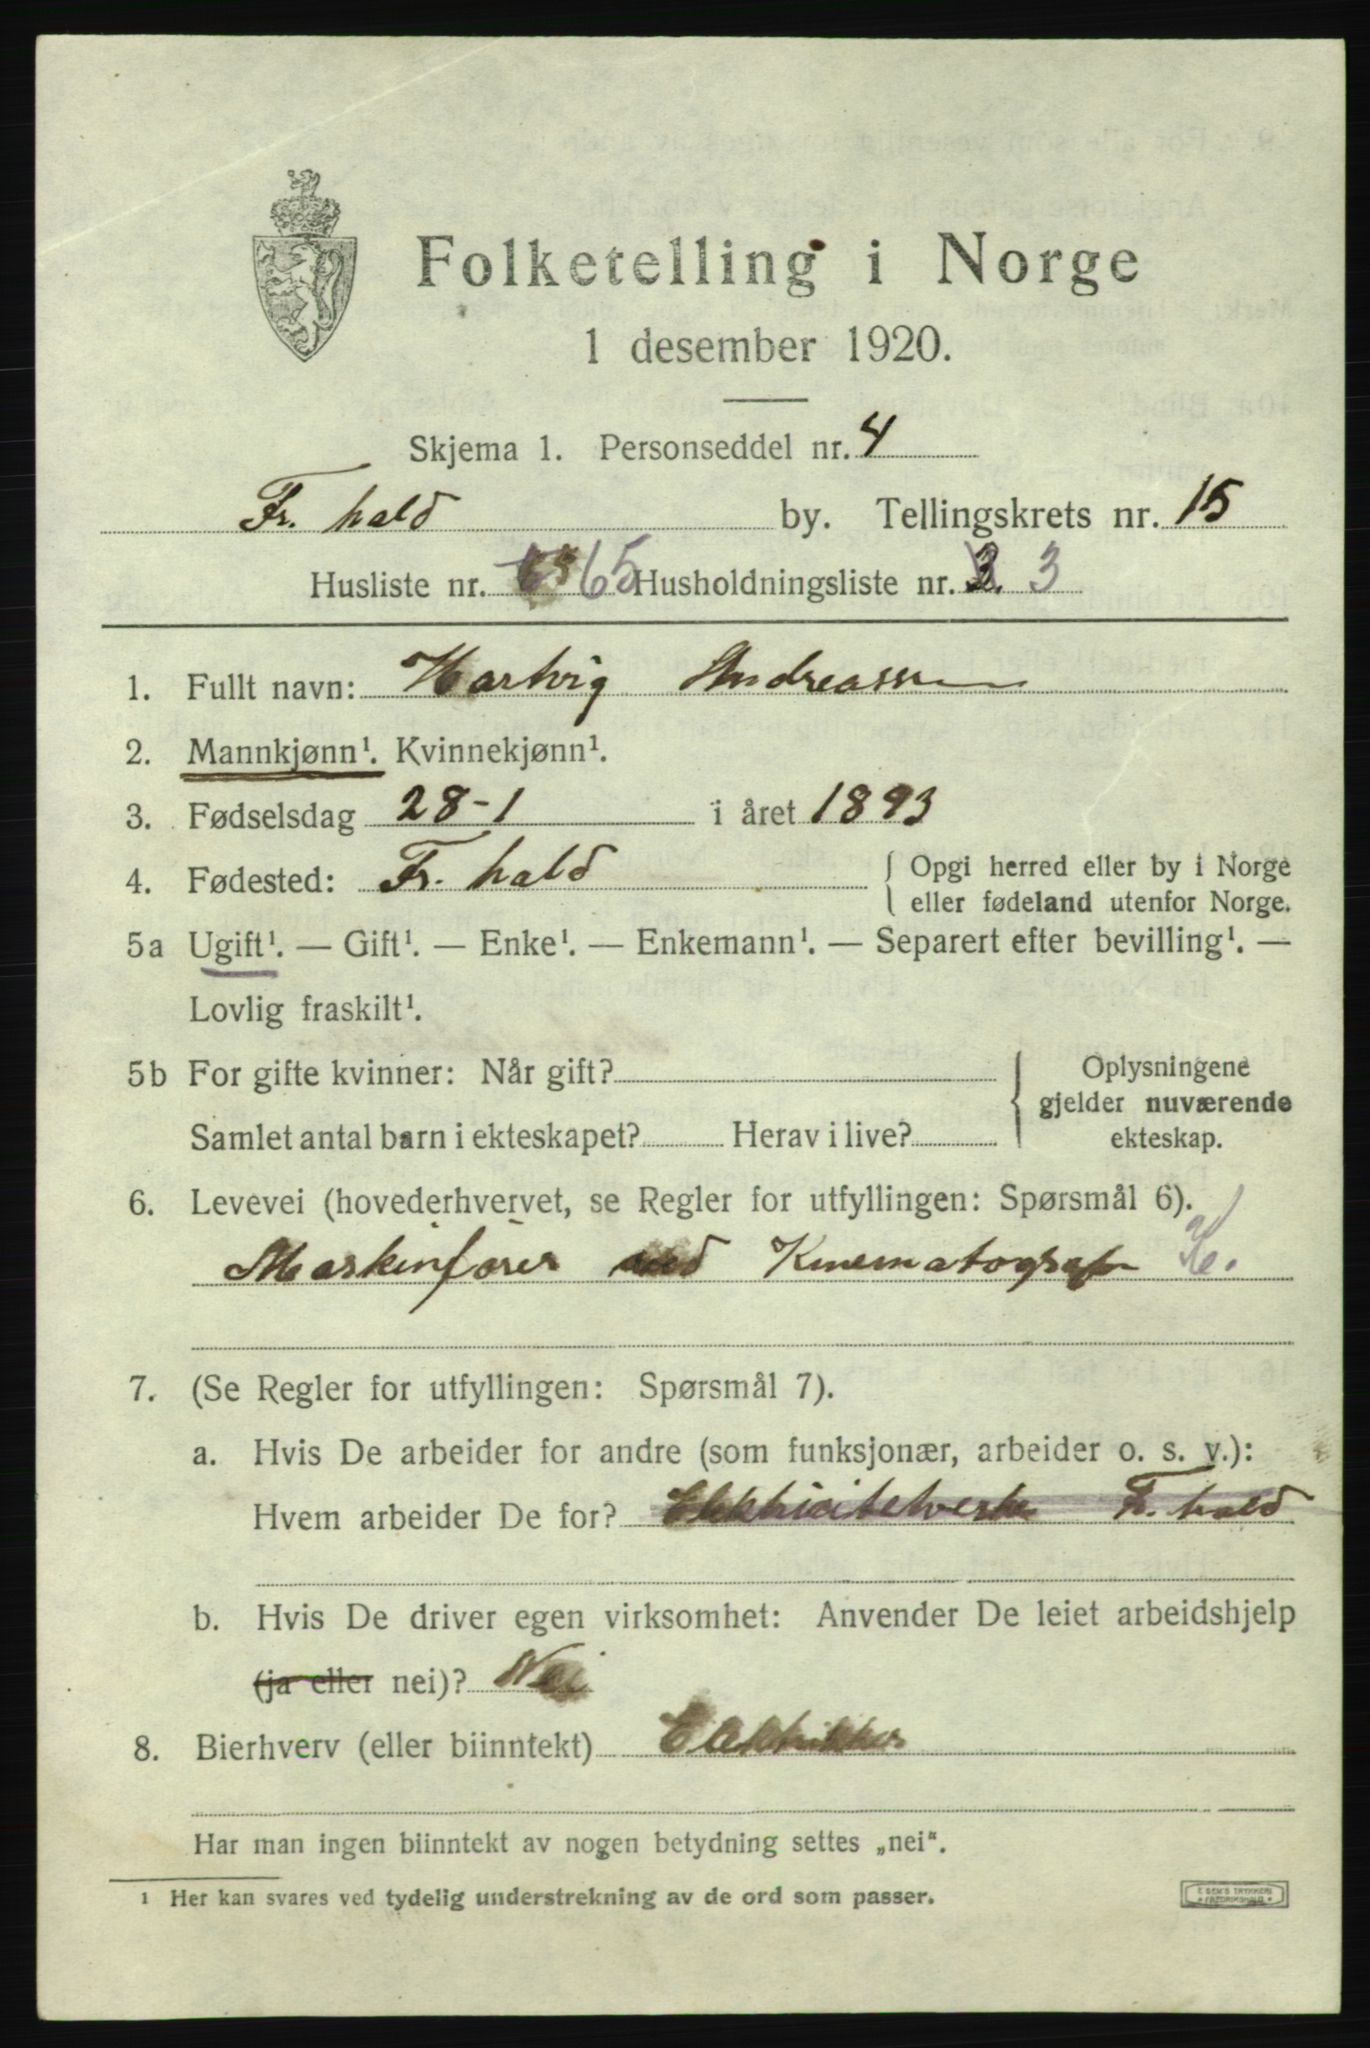 Folketelling i Norge
1 desember 1920.
Skjema 1. Personseddel nr. 4
Fr. hald by. Tellingskrets nr. 15
Husliste nr. 65 Husholdningsliste nr. 3. 3
1. Fullt navn: Hartvig Andreassen
2. Mannkjønn¹. Kvinnekjønn¹.
3. Fødselsdag 28-1 i året 1893
4. Fødested: Fr. hald { Opgi herred eller by i Norge
eller fødeland utenfor Norge.
5a Ugift¹. — Gift¹. — Enke¹. — Enkemann¹. — Separert efter bevilling¹. —
Lovlig fraskilt¹.
5b For gifte kvinner: Når gift? { Oplysningene
gjelder nuværende
Samlet antal barn i ekteskapet? Herav i live? ekteskap.
6. Levevei (hovederhvervet, se Regler for utfyllingen: Spørsmål 6).
Maskinfører ved Kinematograf
7. (Se Regler for utfyllingen: Spørsmål 7).
a. Hvis De arbeider for andre (som funksjonær, arbeider o. s. v.):
Hvem arbeider De for? Fr. hald
b. Hvis De driver egen virksomhet: Anvender De leiet arbeidshjelp
(ja eller nei)? Nei
8. Bierhverv (eller biinntekt) Elektriker
Har man ingen biinntekt av nogen betydning settes „nei“.
¹ Her kan svares ved tydelig understrekning av de ord som passer.
E SEM'S TRYKKERI
FREDRIKSHALD